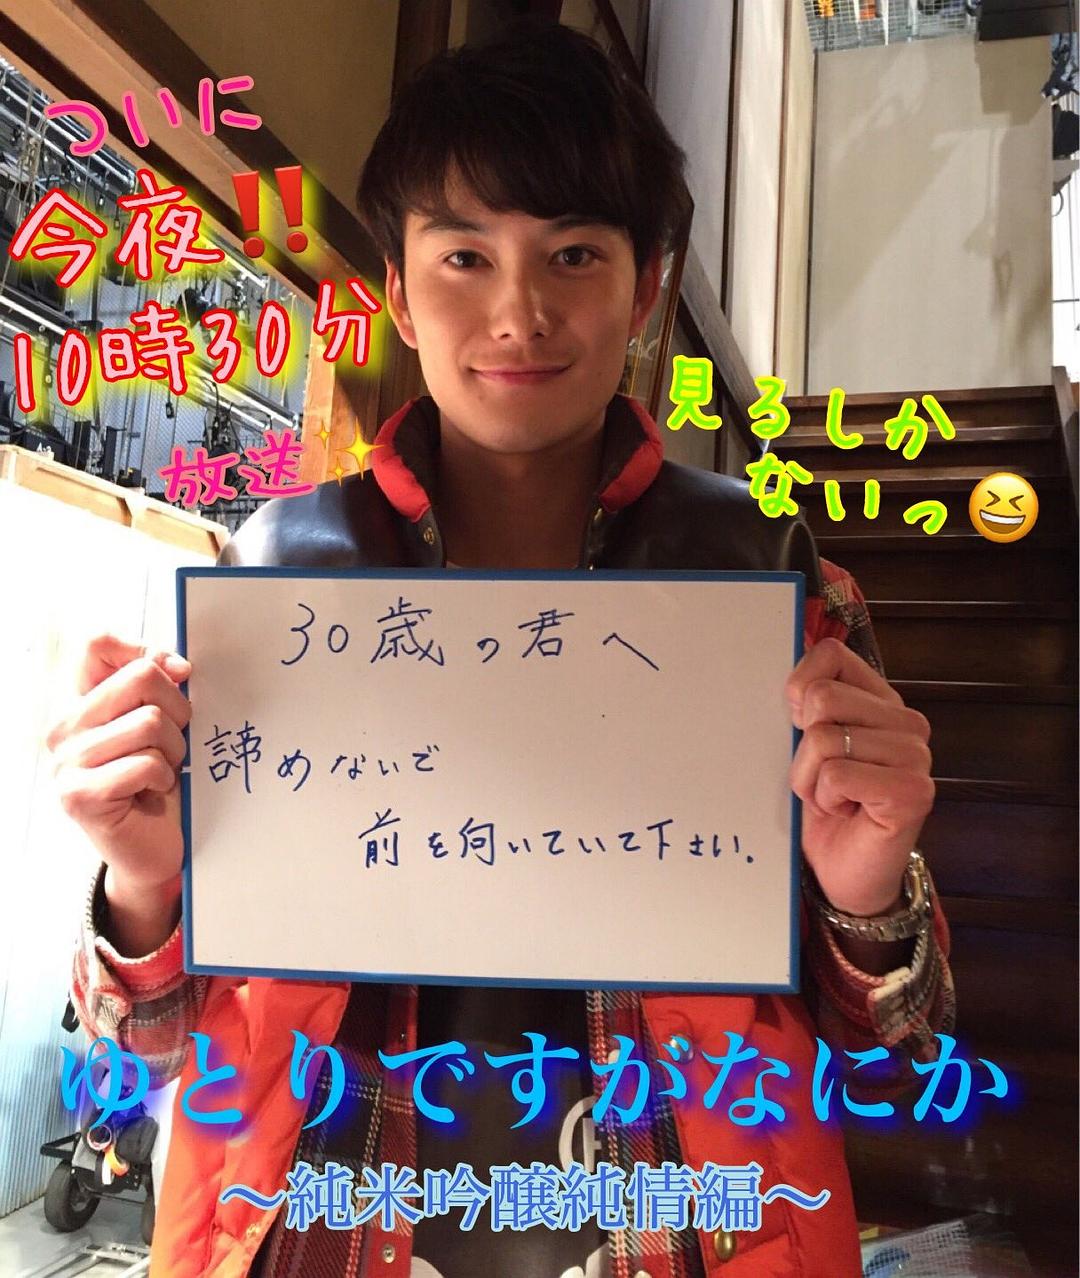 ついに
今夜‼️
10時30分
放送✨
見るしか
ないっ😆
30歳の君へ
諦めないで
前を向いていて下さい.
ゆとりですがなにか
〜純米吟醸純情編〜